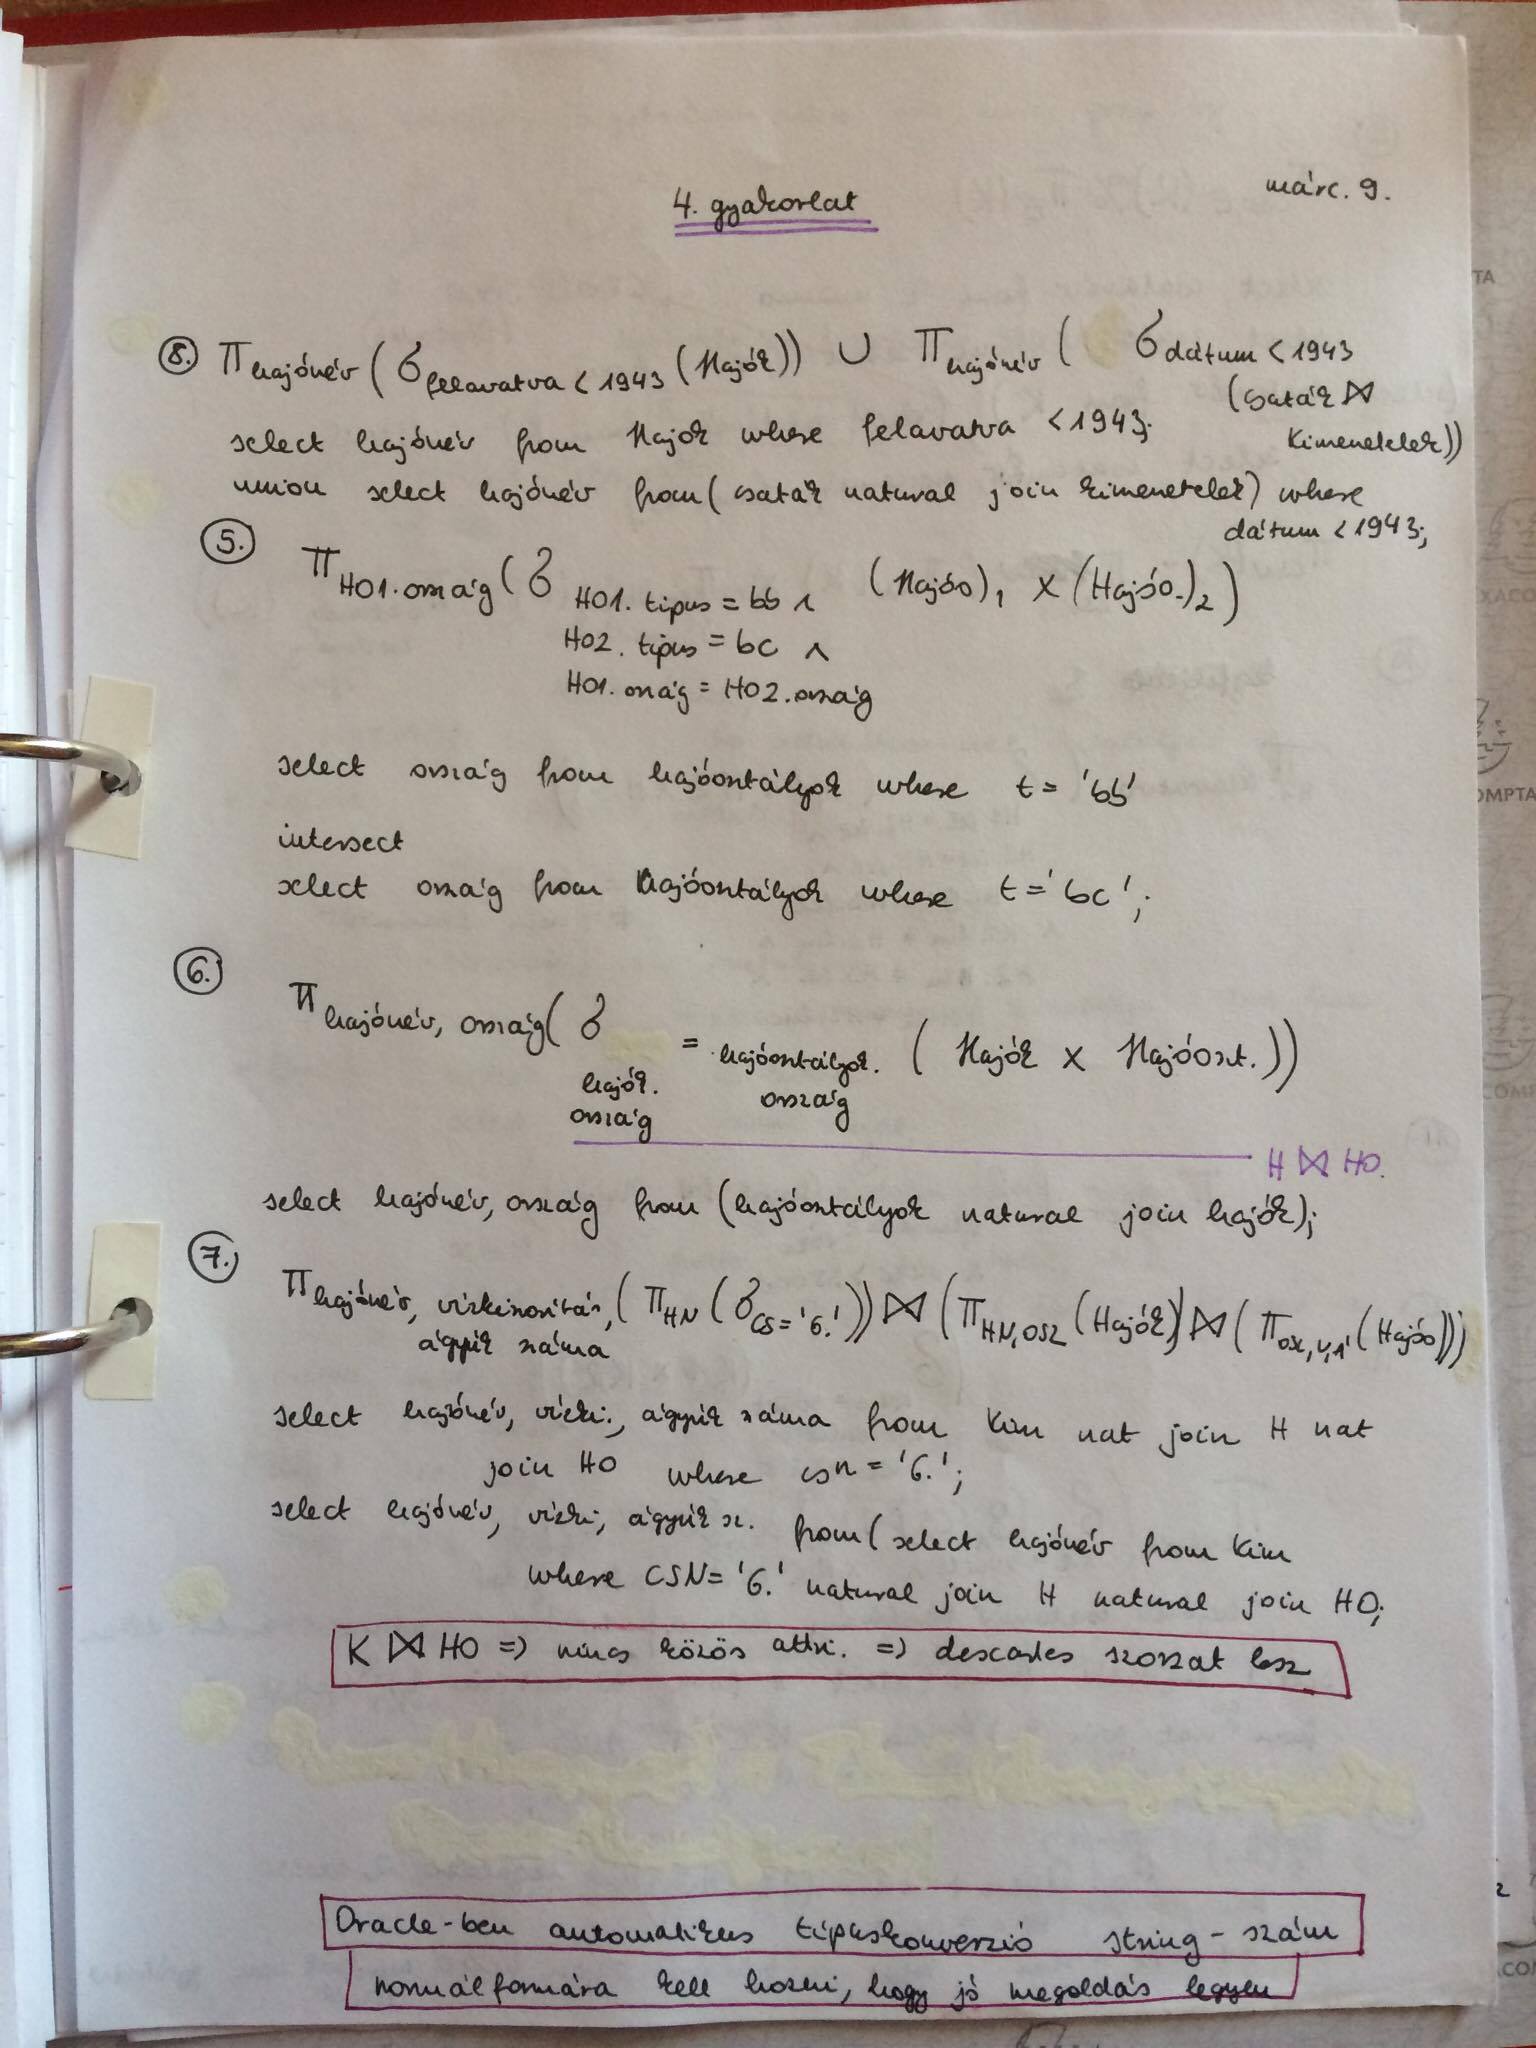 márc. 9.
4. gyakorlat
8. π hajónév (σ felavatva < 1943 (Hajók)) ∪ π hajónév ( σ dátum < 1943
(csaták ⋈
Kimenetelek))
select hajónév from Hajók where felavatva < 1943;
union select hajónév from (csaták natural join kimenetelek) where
dátum < 1943;
5. π HO1.ország (σ HO1.típus = bb ∧ (Hajóo)₁ × (Hajóo.)₂)
HO2.típus = bc ∧
HO1.ország = HO2.ország
select ország from hajóosztályok where t = 'bb'
intersect
select ország from hajóosztályok where t = 'bc';
6. π hajónév, ország (σ hajók. = hajóosztályok. ( Hajók × Hajóoszt. ))
ország ország
H ⋈ HO.
select hajónév, ország from (hajóosztályok natural join hajók);
7. π hajónév, vízkiszorítás, (π HN (σ CS = '6.')) ⋈ (π HN, OSZ (Hajók)) ⋈ (π osz, v, Á (Hajóo)))
ágyúk száma
select hajónév, vízki., ágyúk száma from Kim nat join H nat
join HO where csn = '6.';
select hajónév, vízki, ágyúk sz. from (select hajónév from Kim
where CSN = '6.' natural join H natural join HO;
K ⋈ HO => nincs közös attri. => descartes szorzat lesz
Oracle-ben automatikus típuskonverzió string - szám
normálformára kell hozni, hogy jó megoldás legyen